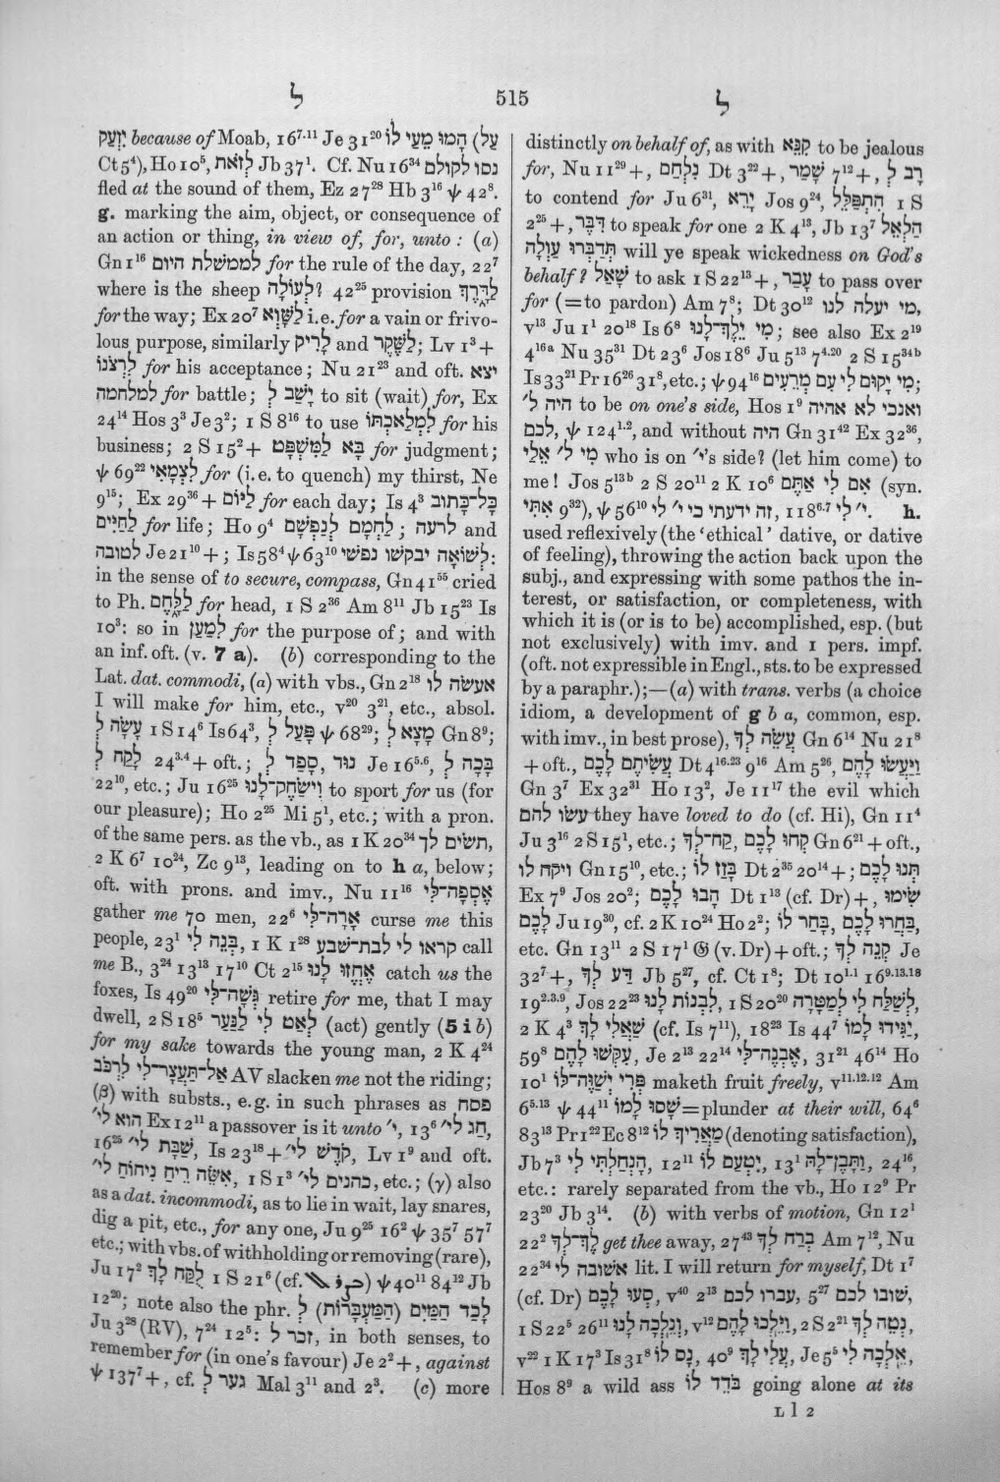 ל 515 ל
יִזְעָק because of Moab, 16⁷·¹¹ Je 31²⁰ הָמוּ מֵעַי לוֹ (עַל
Ct 5⁴), Ho 10⁵, לְזֹאת Jb 37¹. Cf. Nu 16³⁴ נסו לקולם
fled at the sound of them, Ez 27²⁸ Hb 3¹⁶ ψ 42⁸.
g. marking the aim, object, or consequence of
an action or thing, in view of, for, unto: (a)
Gn 1¹⁶ לממשלת היום for the rule of the day, 22⁷
where is the sheep לְעוֹלָה? 42²⁵ provision לַדֶּרֶךְ
for the way; Ex 20⁷ לַשָּׁוְא i.e. for a vain or frivo-
lous purpose, similarly לָרִיק and לַשֶּׁקֶר; Lv 1³ +
לִרְצֹנוֹ for his acceptance; Nu 21²³ and oft. יצא
למלחמה for battle; יָשַׁב לְ to sit (wait) for, Ex
24¹⁴ Hos 3³ Je 3²; 1 S 8¹⁶ to use לִמְלַאכְתּוֹ for his
business; 2 S 15² + בָּא לַמִּשְׁפָּט for judgment;
ψ 69²² לִצְמָאִי for (i.e. to quench) my thirst, Ne
9¹⁵; Ex 29³⁶ + לַיּוֹם for each day; Is 4³ כָּל־כָּתוּב
לְחַיִּים for life; Ho 9⁴ לַחְמָם לְנַפְשָׁם; לרעה and
לטובה Je 21¹⁰ +; Is 58⁴ ψ 63¹⁰ לְשׁוֹאָה יבקשו נפשי:
in the sense of to secure, compass, Gn 41⁵⁵ cried
to Ph. לַלֶּחֶם for head, 1 S 2³⁶ Am 8¹¹ Jb 15²³ Is
10³: so in לְמַעַן for the purpose of; and with
an inf. oft. (v. 7 a). (b) corresponding to the
Lat. dat. commodi, (a) with vbs., Gn 2¹⁸ אעשׂה לו
I will make for him, etc., v²⁰ 3²¹, etc., absol.
עָשָׂה לְ 1 S 14⁶ Is 64³, פָּעַל לְ ψ 68²⁹; מָצָא לְ Gn 8⁹;
לָקַח לְ 24³·⁴ + oft.; נוּד, סָפַד לְ Je 16⁵·⁶, בָּכָה לְ
22¹⁰, etc.; Ju 16²⁵ וִישַׂחֶק־לָנוּ to sport for us (for
our pleasure); Ho 2²⁵ Mi 5¹, etc.; with a pron.
of the same pers. as the vb., as 1 K 20³⁴ תשׂים לך,
2 K 6⁷ 10²⁴, Zc 9¹³, leading on to h a, below;
oft. with prons. and imv., Nu 11¹⁶ אֶסְפָה־לִּי
gather me 70 men, 22⁶ אָרָה־לִּי curse me this
people, 23¹ בְּנֵה לִי, 1 K 1²⁸ קראו לי לבת־שׁבע call
me B., 3²⁴ 13¹³ 17¹⁰ Ct 2¹⁵ אֶחֱזוּ לָנוּ catch us the
foxes, Is 49²⁰ גְּשָׁה־לִּי retire for me, that I may
dwell, 2 S 18⁵ לְאַט לִי לַנַּעַר (act) gently (5 i b)
for my sake towards the young man, 2 K 4²⁴
אַל־תַּעֲצָר־לִי לִרְכֹּב AV slacken me not the riding;
(β) with substs., e.g. in such phrases as פסח
הוא לי׳ Ex 12¹¹ a passover is it unto ׳י, 13⁶ חַג לי׳,
16²⁵ שַׁבָּת לי׳, Is 23¹⁸ + קֹדֶשׁ לי׳, Lv 1⁹ and oft.
אִשֶּׁה רֵיחַ נִיחוֹחַ לי׳, 1 S 1³ כהנים לי׳, etc.; (γ) also
as a dat. incommodi, as to lie in wait, lay snares,
dig a pit, etc., for any one, Ju 9²⁵ 16² ψ 35⁷ 57⁷
etc.; with vbs. of withholding or removing (rare),
Ju 17² לֻקַּח לָךְ 1 S 21⁶ (cf. ) ψ 40¹¹ 84¹² Jb
12²⁰; note also the phr. לָכַד הַמַּיִם (הַמַּעְבָּרוֹת) לְ
Ju 3²⁸ (RV), 7²⁴ 12⁵: זכר לְ, in both senses, to
remember for (in one's favour) Je 2² +, against
ψ 137⁷ +, cf. גער לְ Mal 3¹¹ and 2³. (c) more
distinctly on behalf of, as with קִנֵּא to be jealous
for, Nu 11²⁹ +, נִלְחַם Dt 3²² +, שָׁמַר 7¹² +, רָב לְ
to contend for Ju 6³¹, יָרֵא Jos 9²⁴, הִתְפַּלֵּל 1 S
2²⁵ +, דִּבֶּר to speak for one 2 K 4¹³, Jb 13⁷ הַלְאֵל
תְּדַבְּרוּ עַוְלָה will ye speak wickedness on God's
behalf? שָׁאַל to ask 1 S 22¹³ +, עָבַר to pass over
for (= to pardon) Am 7⁸; Dt 30¹² מי יעלה לנו,
v¹³ Ju 1¹ 20¹⁸ Is 6⁸ מִי יֵלֶךְ־לָנוּ; see also Ex 2¹⁹
4¹⁶ᵃ Nu 35³¹ Dt 23⁶ Jos 18⁶ Ju 5¹³ 7⁴·²⁰ 2 S 15³⁴ᵇ
Is 33²¹ Pr 16²⁶ 31⁸, etc.; ψ 94¹⁶ מִי יָקוּם לִי עִם מְרֵעִים;
היה ל׳ to be on one's side, Hos 1⁹ ואנכי לא אהיה
לכם, ψ 124¹·², and without היה Gn 31⁴² Ex 32²⁶,
מִי לי׳ אֵלָי who is on ׳י's side? (let him come) to
me! Jos 5¹³ᵇ 2 S 20¹¹ 2 K 10⁶ אִם לִי אַתֶּם (syn.
אִתִּי 9³²), ψ 56¹⁰ זה ידעתי כי י׳ לי, 118⁶·⁷ י׳ לי. h.
used reflexively (the 'ethical' dative, or dative
of feeling), throwing the action back upon the
subj., and expressing with some pathos the in-
terest, or satisfaction, or completeness, with
which it is (or is to be) accomplished, esp. (but
not exclusively) with imv. and 1 pers. impf.
(oft. not expressible in Engl., sts. to be expressed
by a paraphr.);—(a) with trans. verbs (a choice
idiom, a development of g b a, common, esp.
with imv., in best prose), עֲשֵׂה לְךָ Gn 6¹⁴ Nu 21⁸
+ oft., עֲשִׂיתֶם לָכֶם Dt 4¹⁶·²³ 9¹⁶ Am 5²⁶, וַיַּעֲשׂוּ לָהֶם
Gn 3⁷ Ex 32³¹ Ho 13², Je 11¹⁷ the evil which
עשׂו להם they have loved to do (cf. Hi), Gn 11⁴
Ju 3¹⁶ 2 S 15¹, etc.; קְחוּ לָכֶם, קַח־לְךָ Gn 6²¹ + oft.,
ויקח לו Gn 15¹⁰, etc.; בָּזַז לוֹ Dt 2³⁵ 20¹⁴ +; תְּנוּ לָכֶם
Ex 7⁹ Jos 20²; הָבוּ לָכֶם Dt 1¹³ (cf. Dr) +, שִׂימוּ
לָכֶם Ju 19³⁰, cf. 2 K 10²⁴ Ho 2²; בַּחֲרוּ לָכֶם, בָּחַר לוֹ
etc. Gn 13¹¹ 2 S 17¹ 𝔊 (v. Dr) + oft.; קְנֵה לְךָ Je
32⁷ +, דַּע לְךָ Jb 5²⁷, cf. Ct 1⁸; Dt 10¹·¹ 16⁹·¹³·¹⁸
19²·³·⁹, Jos 22²³ לִבְנוֹת לָנוּ, 1 S 20²⁰ לְשַׁלַּח לִי לְמַטָּרָה,
2 K 4³ שַׁאֲלִי לָךְ (cf. Is 7¹¹), 18²³ Is 44⁷ יַגִּידוּ לָמוֹ,
59⁸ עִקְּשׁוּ לָהֶם, Je 2¹³ 22¹⁴ אֶבְנֶה־לִּי, 31²¹ 46¹⁴ Ho
10¹ פְּרִי יְשַׁוֶּה־לּוֹ maketh fruit freely, v¹¹·¹²·¹² Am
6⁵·¹³ ψ 44¹¹ שָׁסוּ לָמוֹ = plunder at their will, 64⁶
83¹³ Pr 1²² Ec 8¹² מַאֲרִיךְ לוֹ (denoting satisfaction),
Jb 7³ הָנְחַלְתִּי לִי, 12¹¹ יִטְעַם לוֹ, 13¹ וַתָּבֶן־לָהּ, 24¹⁶,
etc.: rarely separated from the vb., Ho 12⁹ Pr
23²⁰ Jb 3¹⁴. (b) with verbs of motion, Gn 12¹
22² לֶךְ־לְךָ get thee away, 27⁴³ בְּרַח לְךָ Am 7¹², Nu
22³⁴ אשׁובה לי lit. I will return for myself, Dt 1⁷
(cf. Dr) סְעוּ לָכֶם, v⁴⁰ 2¹³ עברו לכם, 5²⁷ שׁובו לכם,
1 S 22⁵ 26¹¹ וְנֵלְכָה לָּנוּ, v¹² וַיֵּלְכוּ לָהֶם, 2 S 2²¹ נְטֵה לְךָ,
v²² 1 K 17³ Is 31⁸ נָס לוֹ, 40⁹ עֲלִי לָךְ, Je 5⁵ אֵלְכָה לִּי,
Hos 8⁹ a wild ass בֹּדֵד לוֹ going alone at its
L l 2